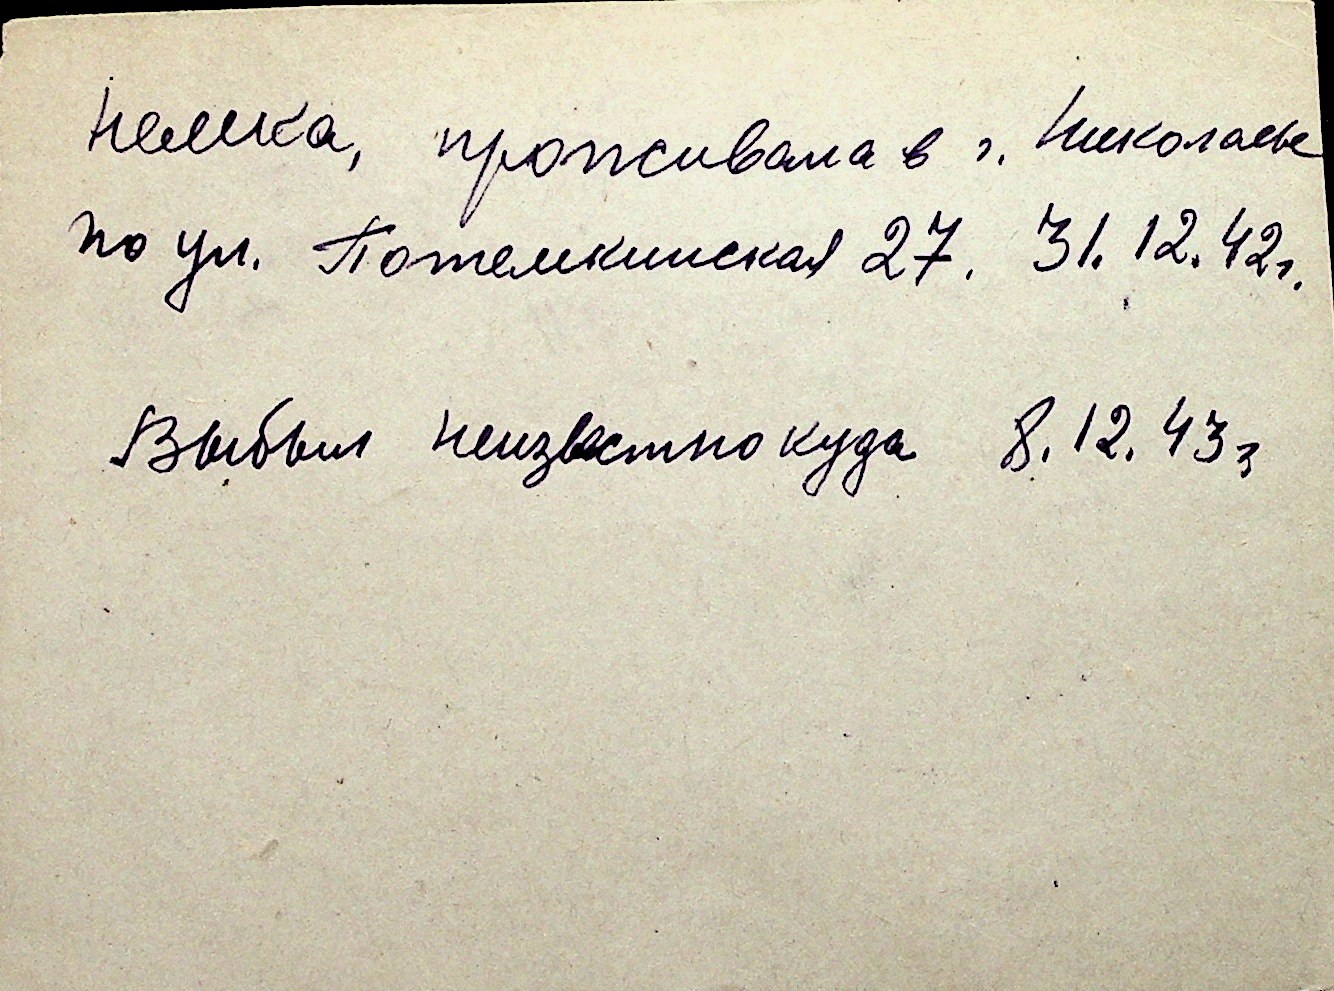 Немка, проживала в г. Николаеве
по ул. Потемкинская 27. 31.12.42г.
Выбыл неизвестно куда 8.12.43г